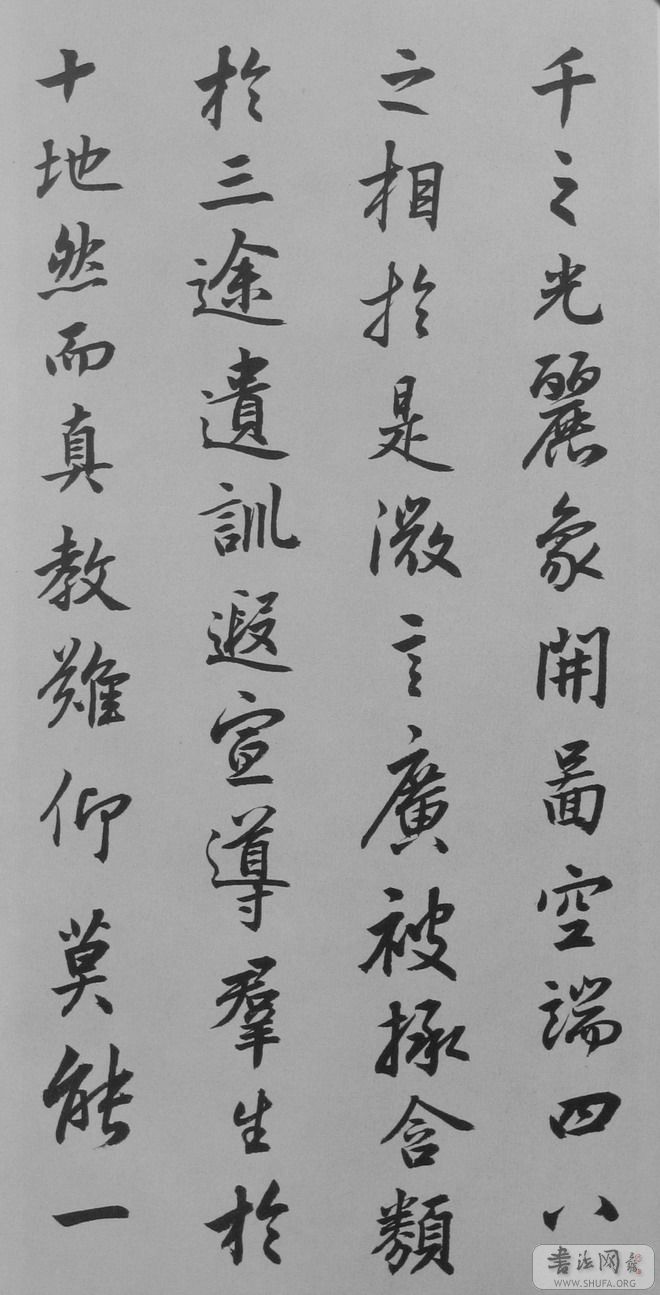 千之光麗象開啚空端四八
之相於是微言廣被拯含類
於三途遺訓遐宣導羣生於
十地然而真教難仰莫能一
書法网
WWW.SHUFA.ORG